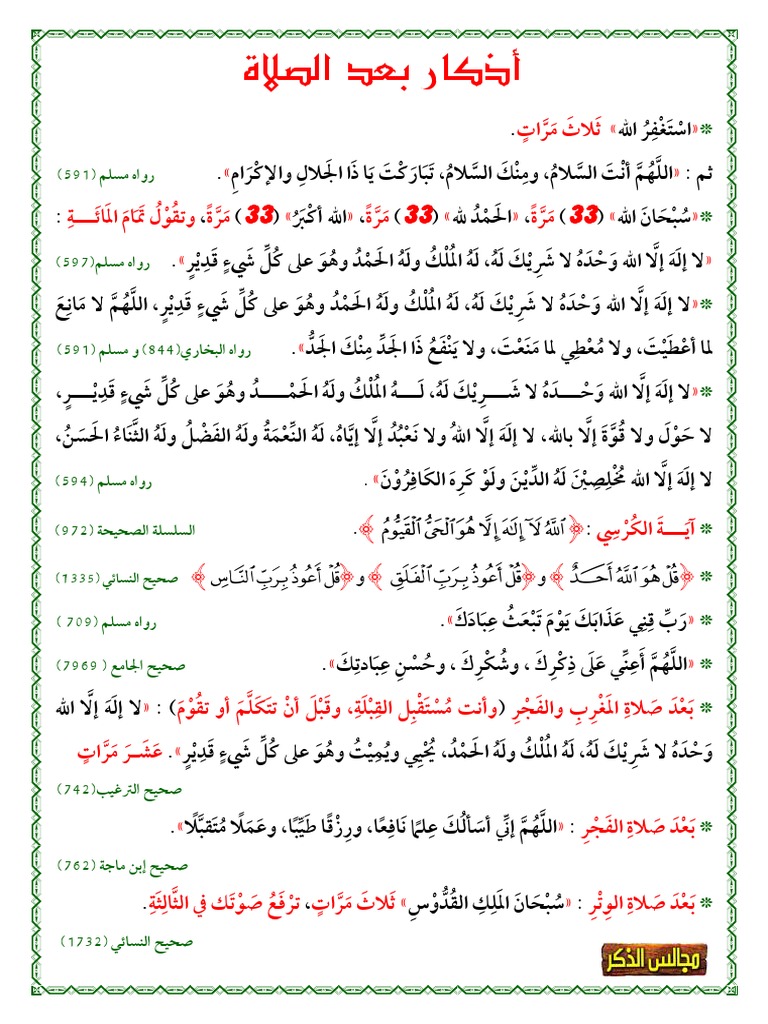 أذكار بعد الصلاة
* «اسْتَغْفِرُ الله» ثَلاثَ مَرَّاتٍ.
ثم : «اللَّهُمَّ أنْتَ السَّلامُ، ومِنْكَ السَّلامُ، تَبَارَكْتَ يَا ذَا الجَلالِ والإكْرَامِ». رواه مسلم (591)
* «سُبْحَانَ الله» (33) مَرَّةً، «الحَمْدُ لله» (33) مَرَّةً، «الله أكْبَرُ» (33) مَرَّةً، وتقُوْلُ تَمَامَ المَائَـــةِ :
«لا إلَهَ إلَّا الله وَحْدَهُ لا شَرِيْكَ لَهُ، لَهُ المُلْكُ ولَهُ الحَمْدُ وهُوَ على كُلِّ شَيءٍ قَدِيْرٍ». رواه مسلم(597)
* «لا إلَهَ إلَّا الله وَحْدَهُ لا شَرِيْكَ لَهُ، لَهُ المُلْكُ ولَهُ الحَمْدُ وهُوَ على كُلِّ شَيءٍ قَدِيْرٍ، اللَّهُمَّ لا مَانِعَ
لما أعْطَيْتَ، ولا مُعْطِي لما مَنَعْتَ، ولا يَنْفَعُ ذَا الجَدِّ مِنْكَ الجَدُّ». رواه البخاري(844) و مسلم (591)
* «لا إلَهَ إلَّا الله وَحْـــدَهُ لا شَـــرِيْكَ لَهُ، لَـــهُ المُلْكُ ولَهُ الحَمْـــدُ وهُوَ على كُلِّ شَيءٍ قَدِيْـــرٍ،
لا حَوْلَ ولا قُوَّةَ إلَّا بالله، لا إلَهَ إلَّا اللهُ ولا نَعْبُدُ إلَّا إيَّاهُ، لَهُ النِّعْمَةُ ولَهُ الفَضْلُ ولَهُ الثَّنَاءُ الحَسَنُ،
لا إلَهَ إلَّا الله مُخْلِصِيْنَ لَهُ الدِّيْنَ ولَوْ كَرِهَ الكَافِرُوْنَ». رواه مسلم (594)
* آيَـــةَ الكُرْسِي : ﴿ ٱللَّهُ لَآ إِلَٰهَ إِلَّا هُوَ ٱلْحَىُّ ٱلْقَيُّومُ ﴾. السلسلة الصحيحة (972)
* ﴿قُلْ هُوَ ٱللَّهُ أَحَـــدٌ ﴾ و﴿قُلْ أَعُوذُ بِرَبِّ ٱلْفَلَقِ ﴾ و﴿قُلْ أَعُوذُ بِرَبِّ ٱلنَّاسِ ﴾ صحيح النسائي (1335)
* «رَبِّ قِنِي عَذَابَكَ يَوْمَ تَبْعَثُ عِبَادَكَ». رواه مسلم (709 )
* «اللَّهُمَّ أَعِنِّي عَلَى ذِكْرِكَ ، وشُكْرِكَ ، وحُسْنِ عِبادتِكَ». صحيح الجامع ( 7969)
* بَعْدَ صَلاةِ المَغْرِبِ والفَجْرِ (وأنت مُسْتَقْبِل القِبْلَةِ، وقَبْلَ أنْ تتَكَلَّمَ أو تقُوْمَ) : «لا إلَهَ إلَّا الله
وَحْدَهُ لا شَرِيْكَ لَهُ، لَهُ المُلْكُ ولَهُ الحَمْدُ، يُحْيِي ويُمِيْتُ وهُوَ على كُلِّ شَيءٍ قَدِيْرٍ». عَشَـرَ مَرَّاتٍ
صحيح الترغيب (742)
* بَعْدَ صَلاةِ الفَجْرِ : «اللَّهُمَّ إنِّي أسَألُكَ عِلمًا نَافِعًا، ورِزْقًا طَيِّبًا، وعَمَلًا مُتَقبَّلًا».
صحيح إبن ماجة (762)
* بَعْدَ صَلاةِ الوِتْرِ : «سُبْحَانَ المَلِكِ القُدُّوْسِ» ثَلاثَ مَرَّاتٍ، ترْفَعُ صَوْتَك في الثَّالِثَةِ.
صحيح النسائي (1732)
مجالس الذكر